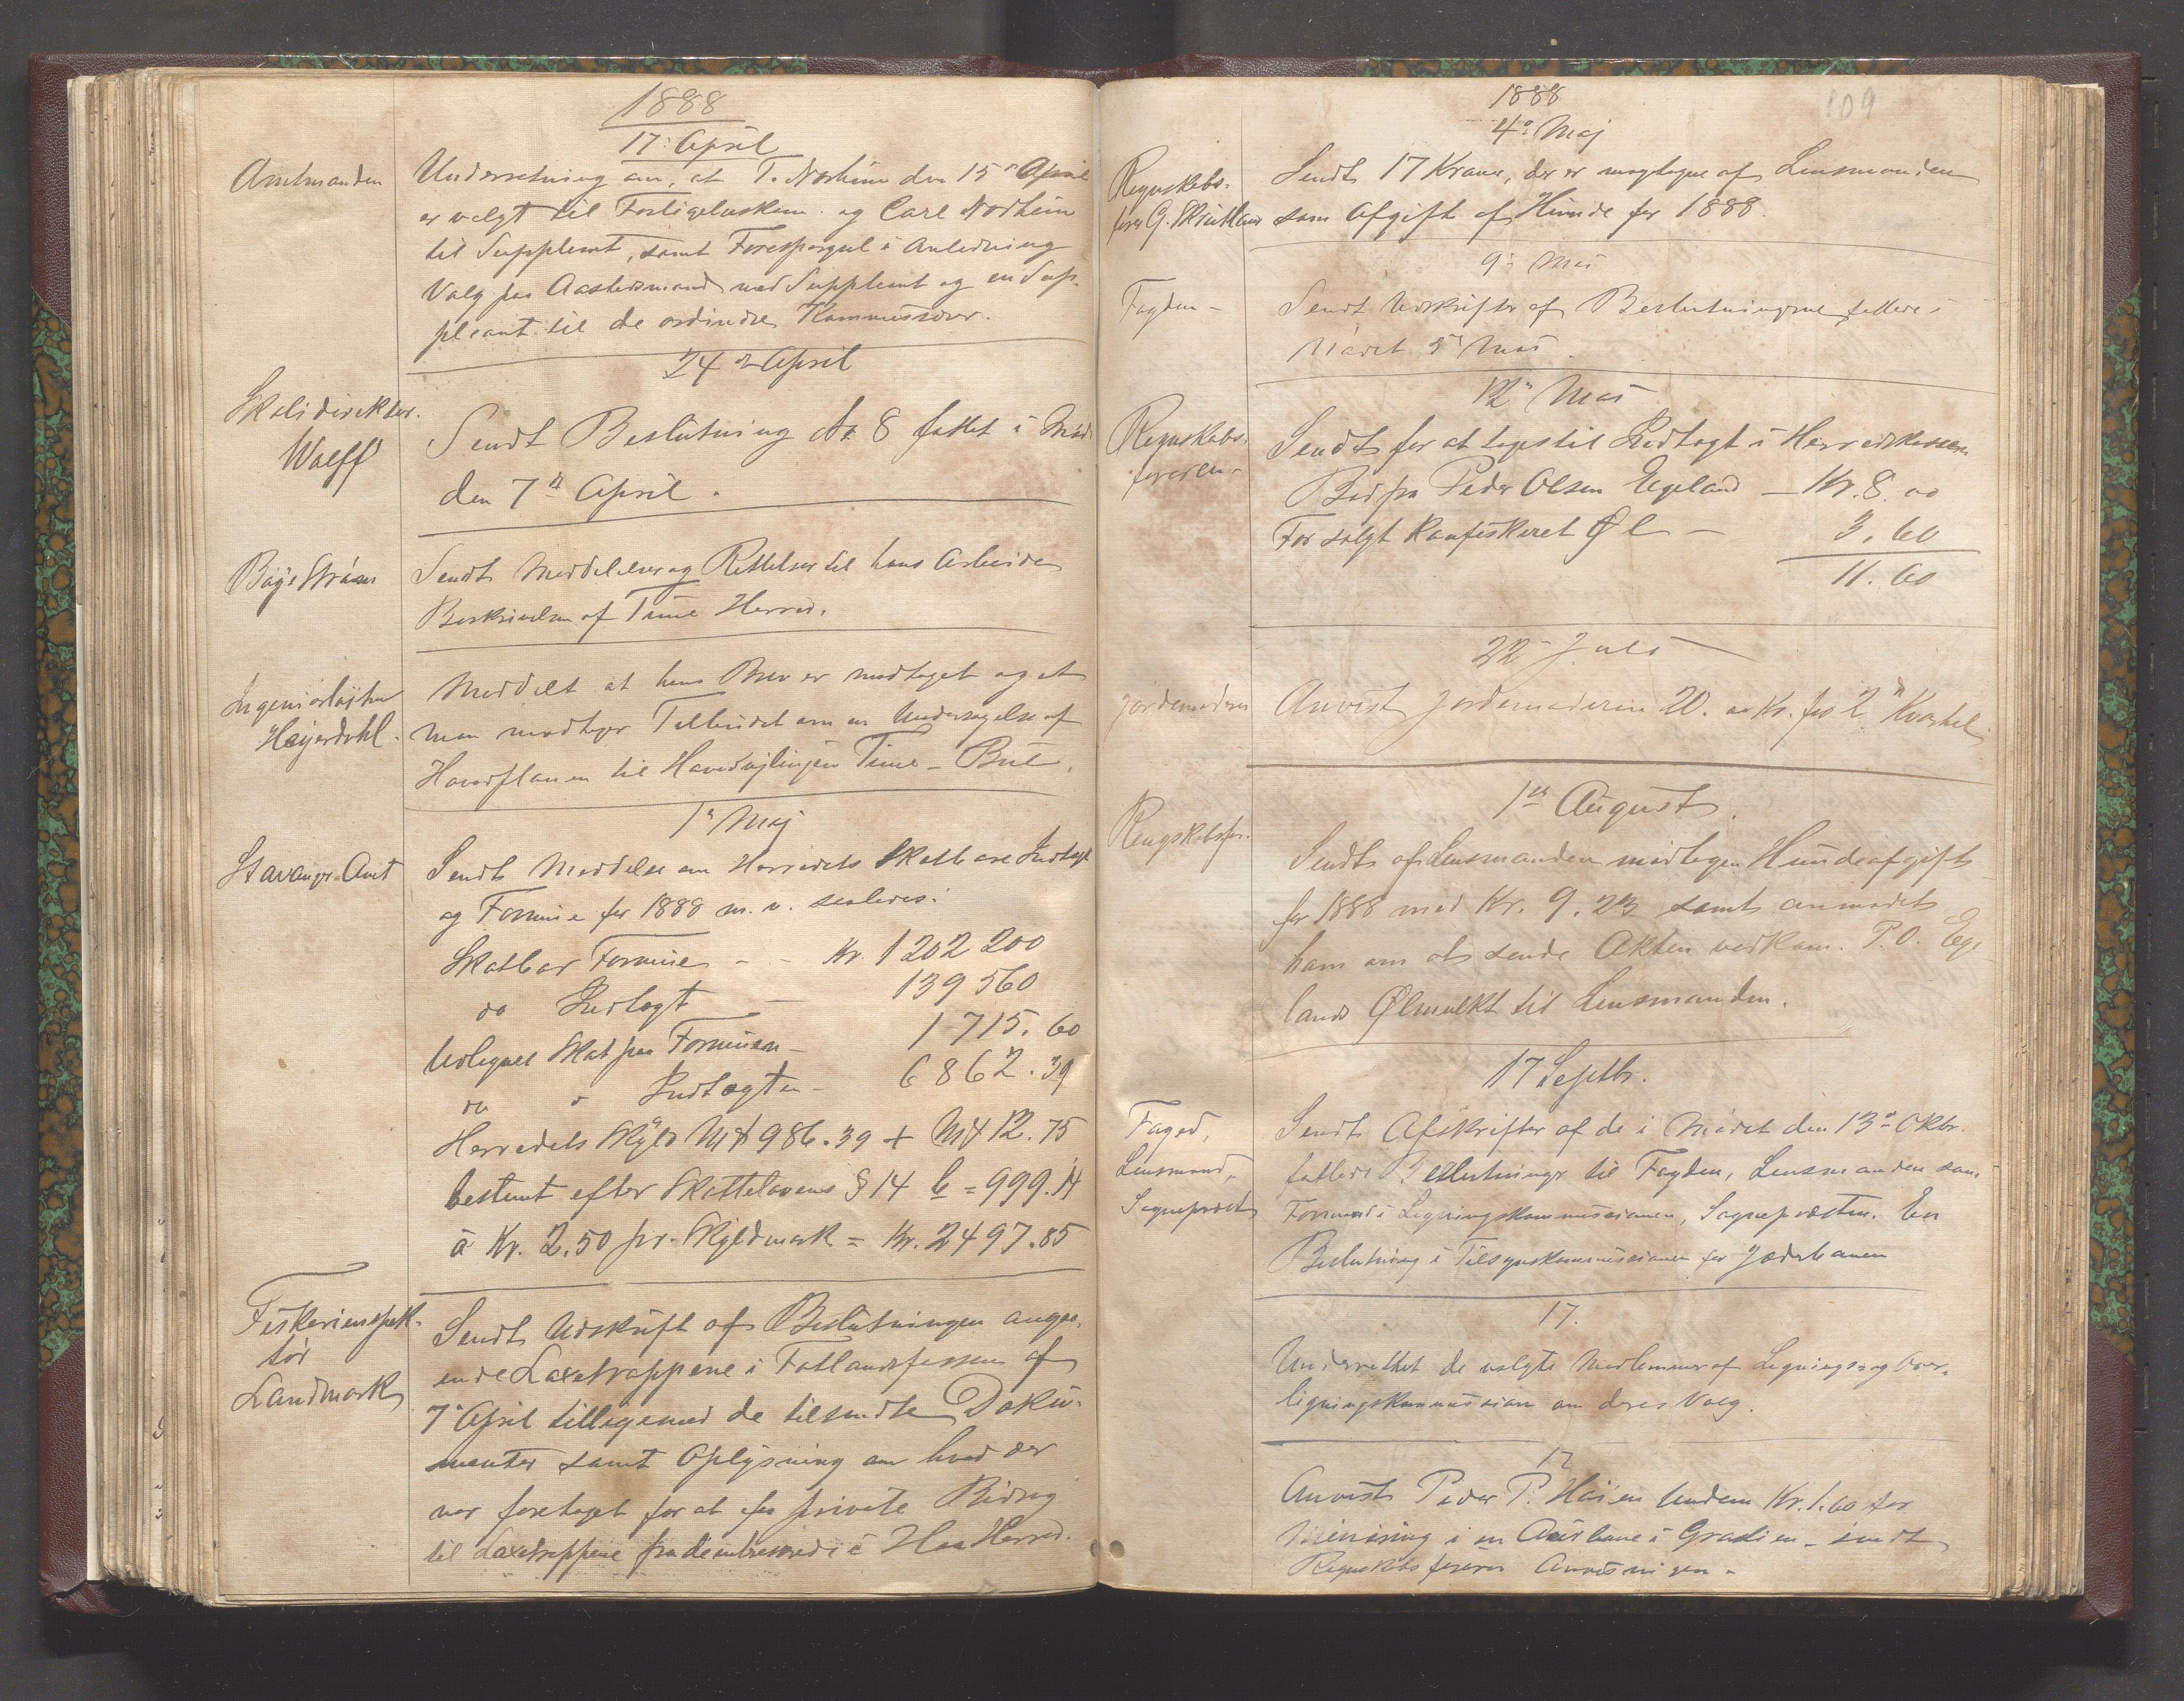 1888
17. April
Amtmanden
Underretning om, at T. Norheim den 15de April
er valgt til Forligelseskom. og Carl Nordheim
til Supplent, samt Forespørgsel i Anledning
Valg paa Aastedsmænd med Supplent og en Sup-
pleant til de ordindre Kommissioner.
24de April
Skoledirektør
Wolff
Sendt Beslutning No 8 fattet i Møde
den 7de April.
Bøje Strøm
Sendt Meddelelser og Rettelser til hans Arbeide
Beskrivelse af Time Herred.
Ingeniørløjtn
Hejerdahl.
Meddelt at hans Brev er modtaget og at
man modtager Tilbudet om en Undersøgelse af
Hovedplanen til Hovedvejlinjen Time - Brue.
1. Maj
Stavanger Amt
Sendt Meddelse om Herredets Skatbare Indtægt
og Formue for 1888 m. v. saaledes:
Skatbar Formue - - Kr. 1 202 200
do Indtægt - 139 560
Udlignet Skat paa Formuen - 1 715. 60
do " Indtægten - 6 862. 39
Herredets Skyld M# 986.39 + M# 12.75
bestemt efter Skattelovens § 14 b = 999.14
à Kr. 2.50 pr. Skyldmark = Kr. 2497.85
Fiskeriinspek-
tør
Landmark
Sendt Udskrift af Beslutningen angaa-
ende Laxetrappene i Fotlandsfossen af
7. April tilligemed de tilsendte Doku-
menter samt Oplysning om hvad der
var foretaget for at faa private Bidrag
til Laxetrappene fra de interesserede i Haa Herred.
109
1888
4de Maj
Regnskabs-
fører G. Skrutland
Sendt 17 Kroner, der er modtagne af Lensmanden
som Afgift af Hunde for 1888.
9de Mai
Fogden -
Sendt Udskrifter af Beslutningerne fattede i
Mødet 5te Mai.
12te Mai
Regnskabs-
føreren -
Sendt for at tages til Indtægt i Herredskassen
Bod fra Peder Olsen Egeland - Kr. 8. 00
For solgt Konfiskeret Øl - 3. 60
11. 60
22 Juli
Jordemoderen
Anvist Jordemoderen 20. 00 Kr. for 2det Kvartal.
1ste August.
Rengskabsfør.
Sendt af Lensmanden modtagen Hundeafgift
for 1888 med Kr. 9. 23 samt anmodet
ham om at sende Akten vedkom. P. O. Ege-
lands Ølmulkt til Lensmanden.
17 Septbr.
Foged,
Lensmand,
Sogneprest
Sendt Afskrifter af de i Mødet den 13de Oktbr.
fattede Beslutninger til Fogden, Lensmanden som
Formand i Ligningskommissionen, Sognepræsten. En
Beslutning i Tilsynskommissionen for Jæderbanen
17.
Underrettet de valgte Medlemmer af Lignings- og Over-
ligningskommission om deres Valg.
17
Anvist Peder P. Høien Undem Kr. 1. 60 for
i en i Gradien - sendt
Regnskabsføreren Anvisningen -